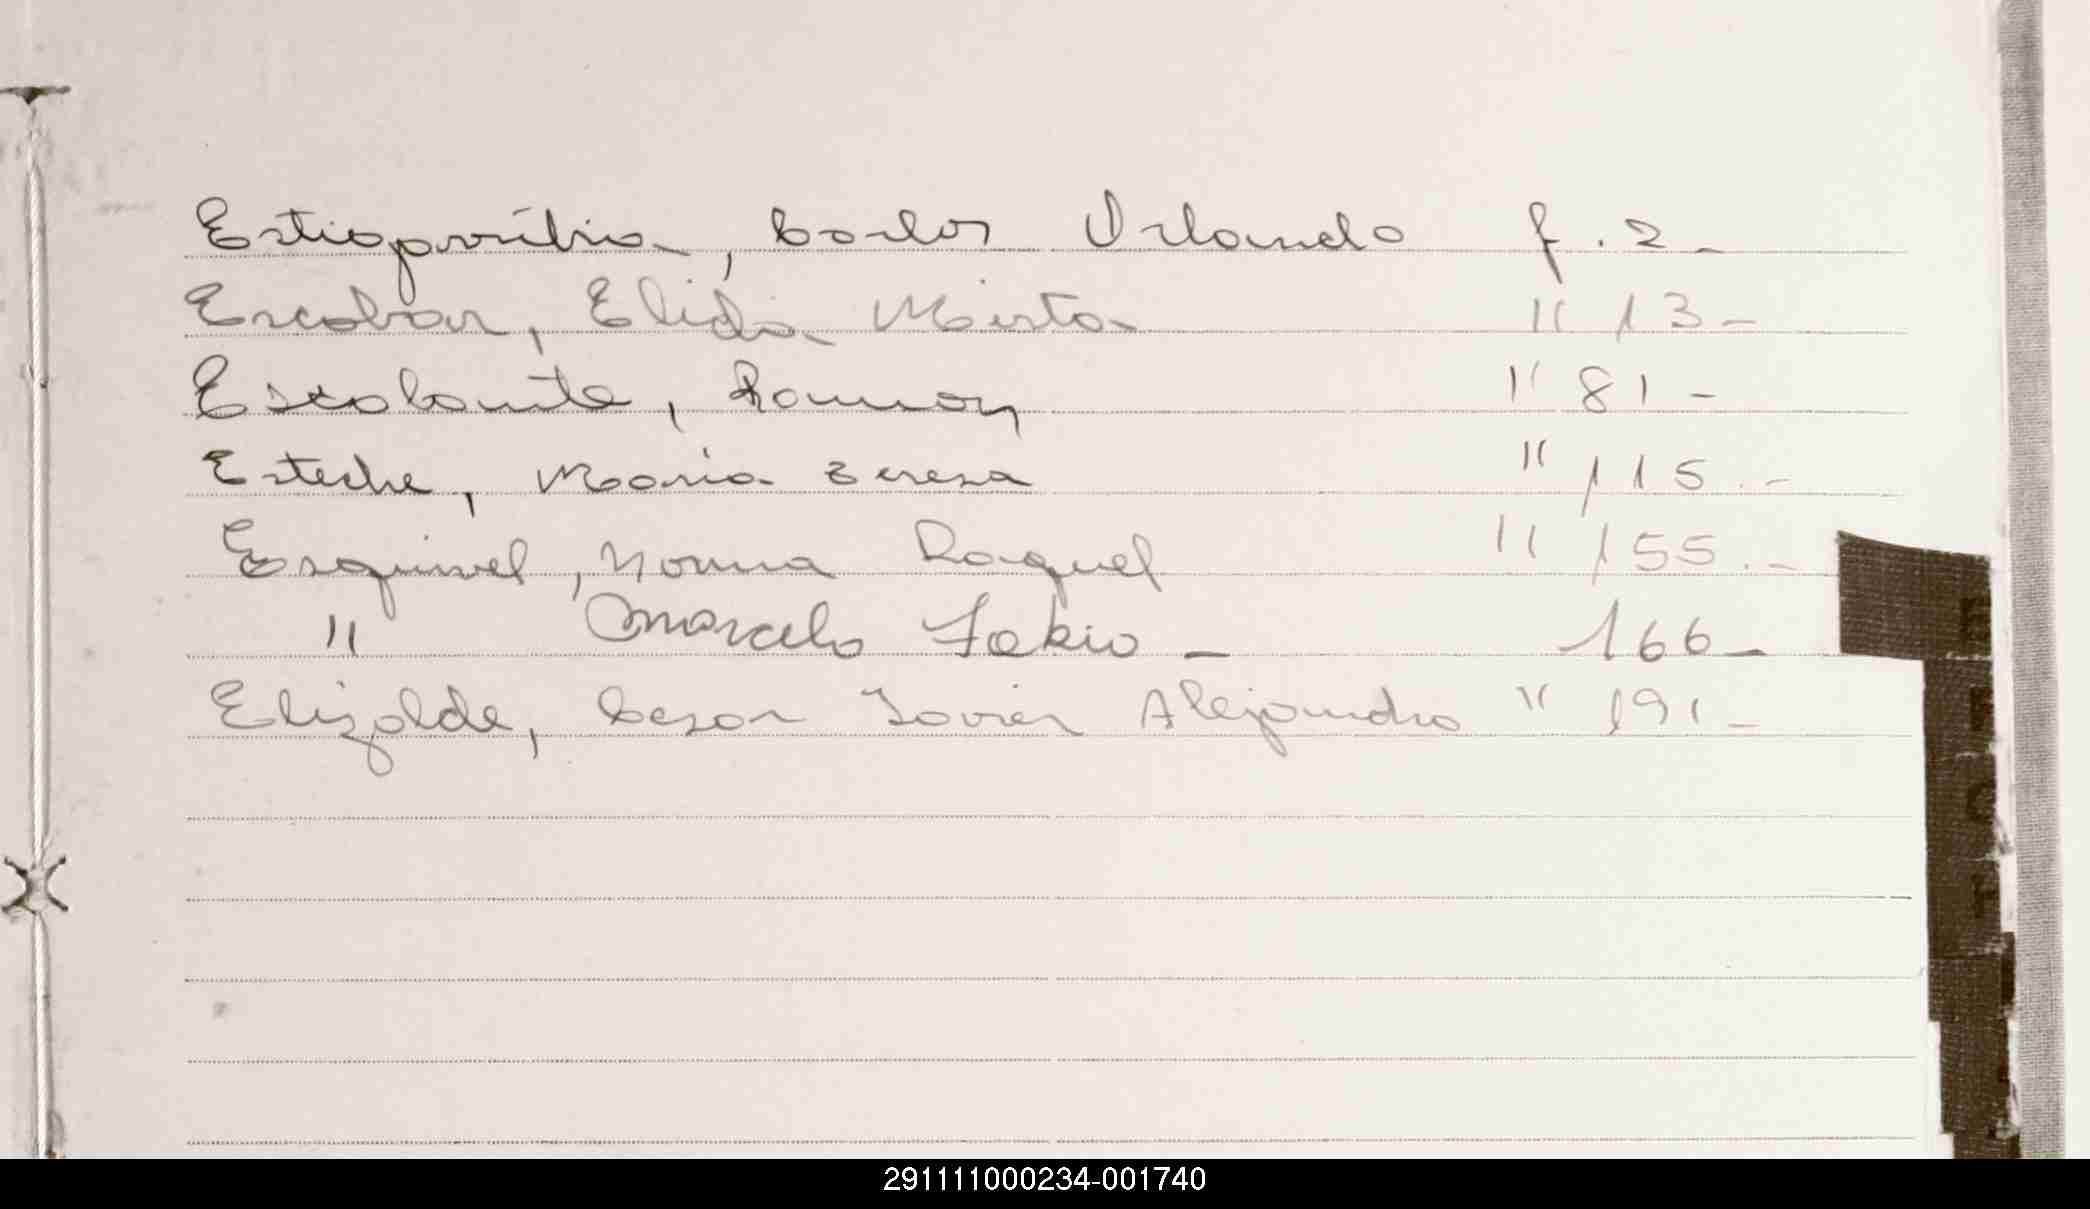 Estigarribia, Carlos Orlando f. 2-
Escobar, Elida Mirta " 13-
Escalante, Ramon " 81-
Esteche, Maria Teresa " 115.-
Esquivel, Norma Raquel " 155.-
" Marcelo Fabio - 166-
Elizalde, Cesar Javier Alejandro " 191-
291111000234-001740